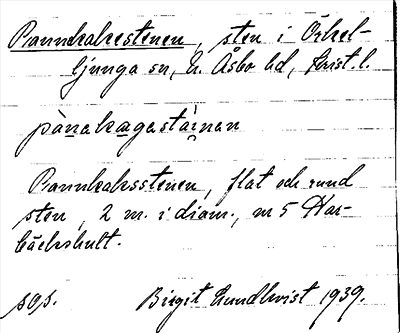 Pannkakestenen, sten i Örkel-
ljunga sn, N. Åsbo hd, Krist. l.
pànakagastàinan
Pannkaksstenen, flat och rund
sten, 2 m. i diam., m 5 Har-
bäckshult.
sos. Birgit Lundkvist 1939.